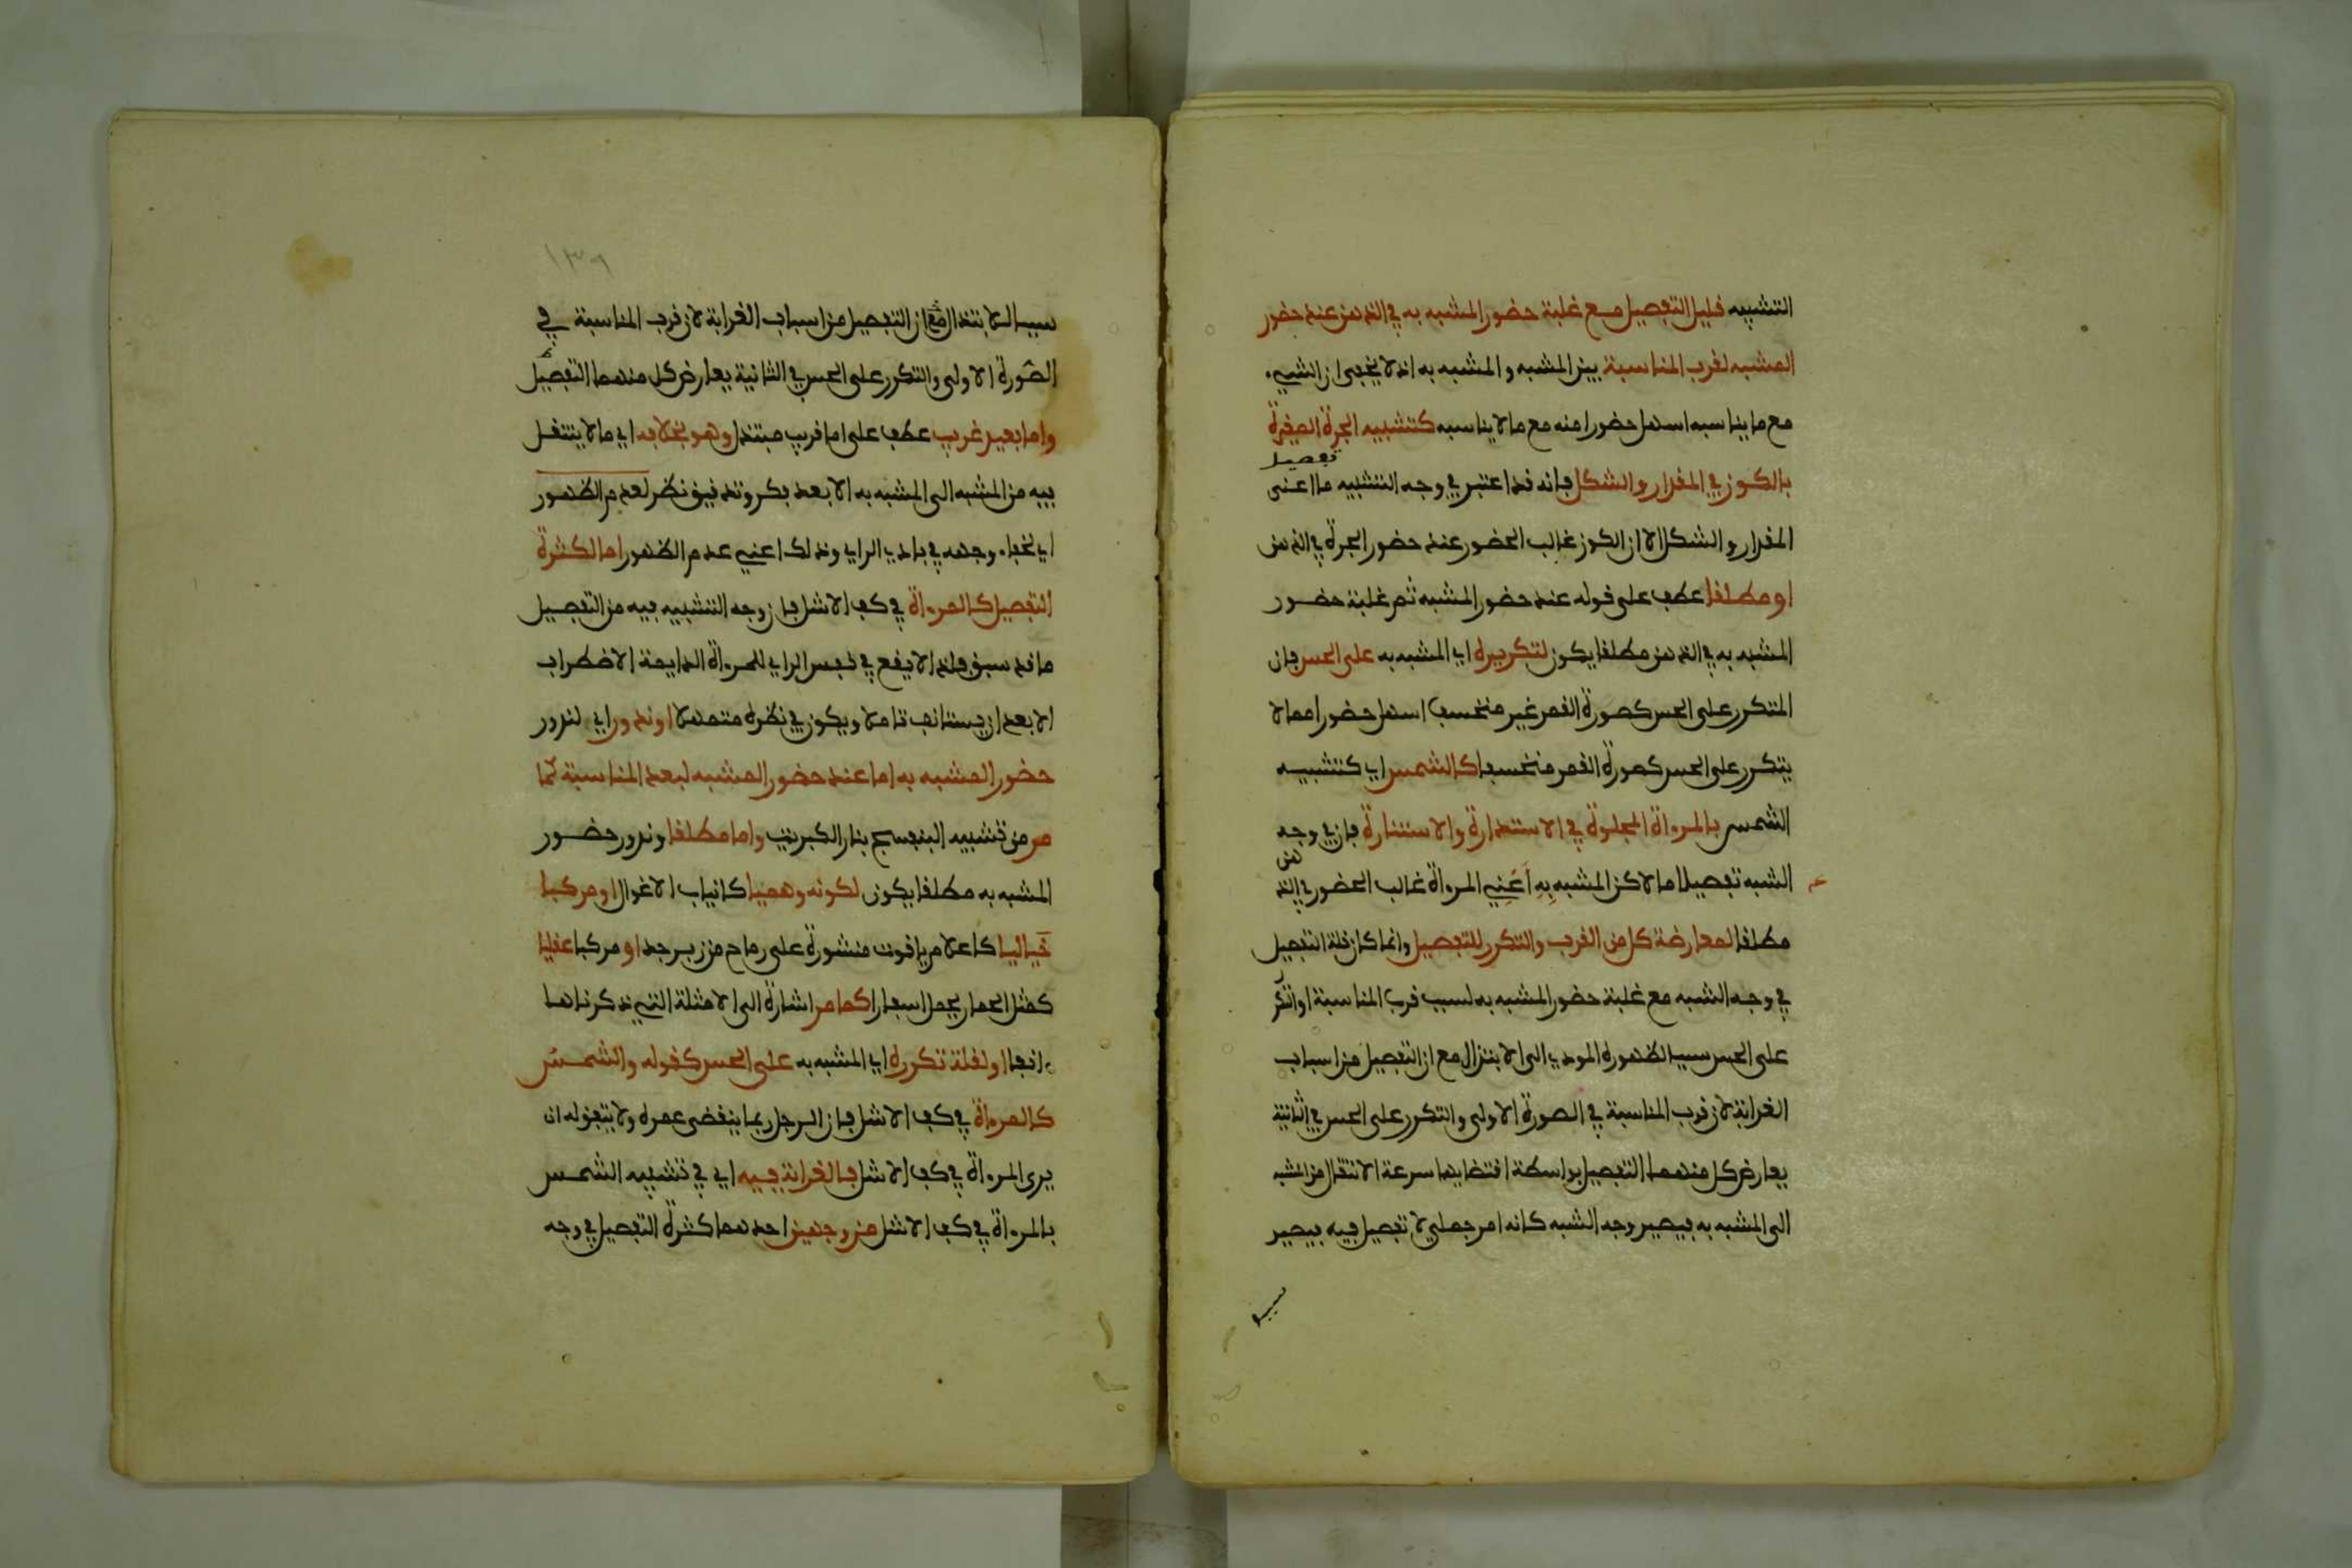 التشبيه قليل التفصيل مع غلبة حضور المشبه به في الذهن عند حضور
المشبه لقرب المناسبة بين المشبه و المشبه به اذ لا يخفى ان الشيء
مع ما يناسبه اسهل حضورا منه مع ما لا يناسبه كتشبيه الجرة الصغيرة
تفصيل
بالكوز في المقدار والشكل فانه قد اعتبر في وجه التشبيه ما اعنى
المقدار و الشكل الا ان الكوز غالب الحضور عند حضور الجرة في الذهن
او مطلقا عطف على قوله عند حضور المشبه ثم غلبة حضور
المشبه به في الذهن مطلقا يكون لتكريره اي المشبه به على الحس فان
المتكرر على الحس كصورة القمر غير منخسف اسهل حضورا مما لا
يتكرر على الحس كصورة القمر منخسفا كالشمس اي كتشبيه
الشمس بالمرءاة المجلوة في الاستدارة والاستنارة فان في وجه
هن
الشبه تفصيلا ما لاكن المشبه به أعني المرءاة غالب الحضور في الذ
مطلقا لمعارضة كل من القرب والتكرر للتفصيل وانما كان قلة التفصيل
في وجه الشبه مع غلبة حضور المشبه به لسبب قرب المناسبة او التكرر
على الحس سببا لظهوره المودي الى الابتذال مع ان التفصيل من اسباب
الغرابة لان قرب المناسبة في الصورة الاولى والتكرر على الحس في الثانية
يعارض كل منهما التفصيل بواسطة اقتضايهما سرعة الانتقال من المشبه
الى المشبه به فيصير وجه الشبه كانه امر جملي لا تفصيل فيه فيصير
سببا
١٣٩
سببا للابتذال مع ان التفصيل من اسباب الغرابة لان قرب المناسبة في
الصورة الاولى والتكرر على الحس في الثانية يعارض كل منهما التفصيل
واما بعيد غريب عطف على اما قريب مبتذل وهو بخلافه اي ما لا ينتقل
فيه من المشبه الى المشبه به الا بعد فكر وتدقيق نظر لعدم الظهور
اي لخفاء وجهه في بادي الراي وذلك اعني عدم الظهور اما لكثرة
التفصيل كالمرءاة في كف الاشل فان وجه التشبيه فيه من التفصيل
ما قد سبق ولذا لا يقع في نفس الراي للمرءاة الدايمة الاضطراب
الا بعد ان يستانف تاملا ويكون في نظره متمهلا او ندور اي لندور
حضور المشبه به اما عند حضور المشبه لبعد المناسبة كما
مر من تشبيه البنفسج بنار الكبريت واما مطلقا وندور حضور
المشبه به مطلقا يكون لكونه وهميا كانياب الاغوال او مركبا
خياليا كاعلام ياقوت منشورة على رماح من زبرجد او مركبا عقليا
كمثل الحمار يحمل اسفارا كما مر اشارة الى الامثلة التي ذكرناها
ءانفا او لقلة تكرره اي المشبه به على الحس كقوله والشمس
كالمرءاة في كف الاشل فان الرجل ربما ينقضى عمره ولا يتفق له ان
يرى المرءاة في كف الاشل فالغرابة فيه اي في تشبيه الشمس
بالمرءاة في كف الاشل من وجهين احدهما كثرة التفصيل في وجه